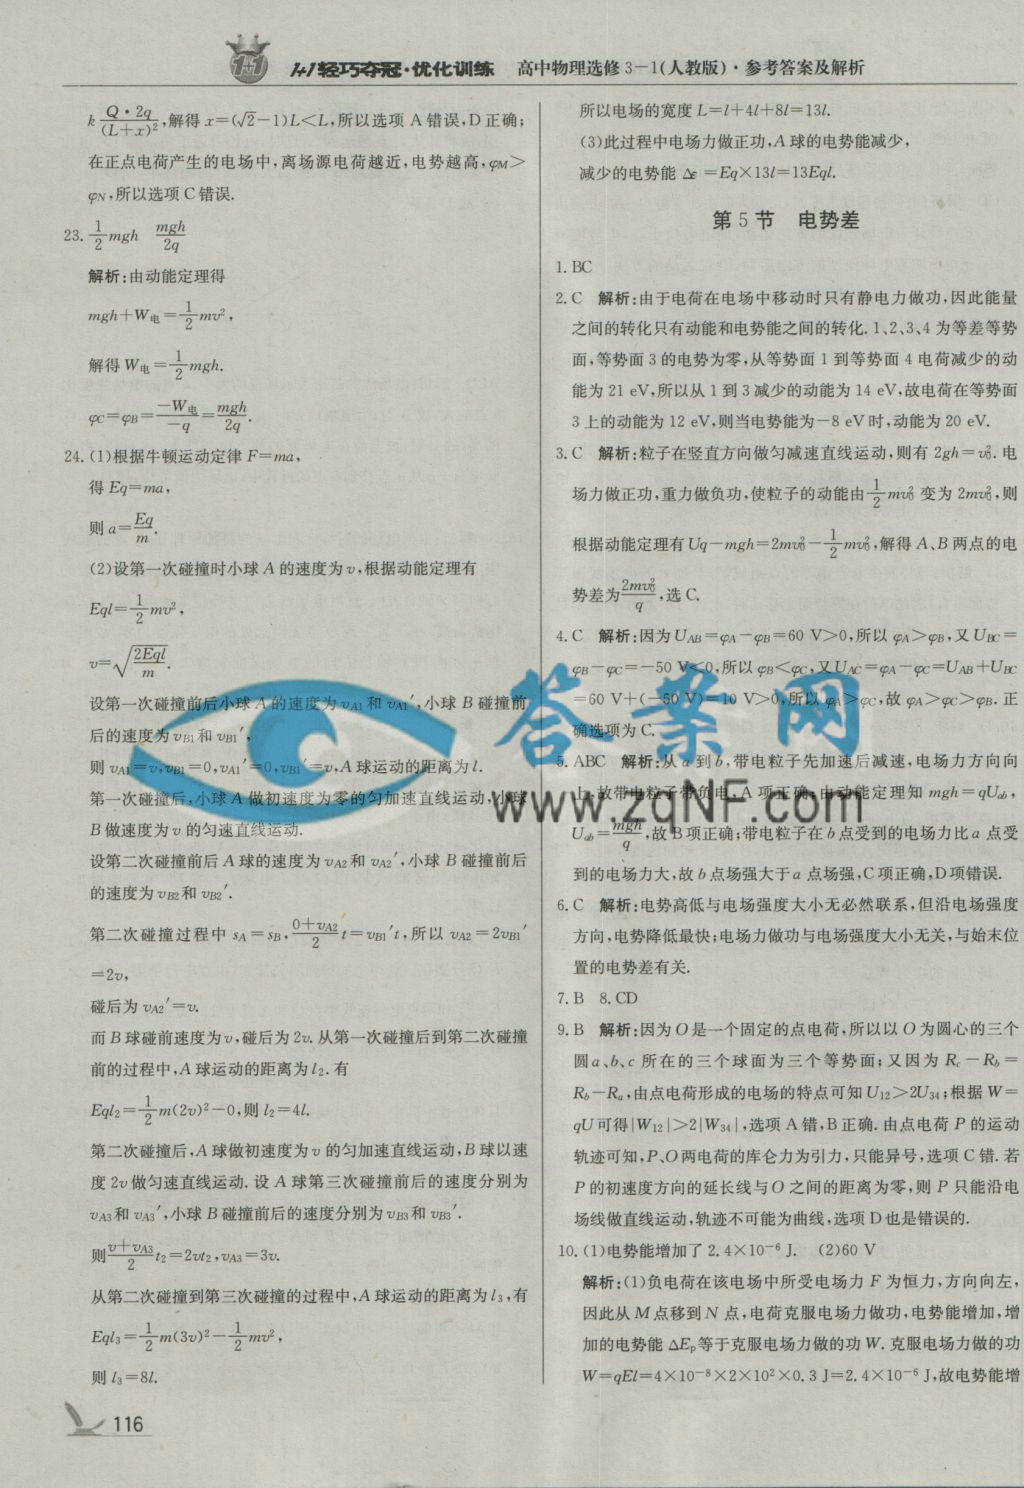 1+1轻巧夺冠·优化训练 高中物理选修3-1(人教版)·参考答案及解析
k Q·2q/(L+x)²,解得x=(√2-1)L<L,所以选项A错误,D正确;
在正点电荷产生的电场中,离场源电荷越近,电势越高,φM>
φN,所以选项C错误.
23. 1/2 mgh mgh/2q
解析:由动能定理得
mgh+W电=1/2 mv²,
解得W电=1/2 mgh.
φC=φB=-W电/-q=mgh/2q.
24.(1)根据牛顿运动定律F=ma,
得Eq=ma,
则a=Eq/m.
(2)设第一次碰撞时小球A的速度为v,根据动能定理有
Eql=1/2 mv²,
v=√(2Eql/m).
设第一次碰撞前后小球A的速度为vA1和vA1′,小球B碰撞前
后的速度为vB1和vB1′,
则vA1=v,vB1=0,vA1′=0,vB1′=v,A球运动的距离为l.
第一次碰撞后,小球A做初速度为零的匀加速直线运动,小球
B做速度为v的匀速直线运动.
设第二次碰撞前后A球的速度为vA2和vA2′,小球B碰撞前后
的速度为vB2和vB2′.
第二次碰撞过程中sA=sB,(0+vA2)/2 t=vB1′t,所以vA2=2vB1′
=2v,
碰后为vA2′=v.
而B球碰前速度为v,碰后为2v.从第一次碰撞后到第二次碰撞
前的过程中,A球运动的距离为l2.有
Eql2=1/2 m(2v)²-0,则l2=4l.
第二次碰撞后,A球做初速度为v的匀加速直线运动,B球以速
度2v做匀速直线运动.设A球第三次碰撞前后的速度分别为
vA3和vA3′,小球B碰撞前后的速度分别为vB3和vB3′.
则(v+vA3)/2 t2=2vt2,vA3=3v.
从第二次碰撞到第三次碰撞的过程中,A球运动的距离为l3,有
Eql3=1/2 m(3v)²-1/2 mv²,
则l3=8l.
116
所以电场的宽度L=l+4l+8l=13l.
(3)此过程中电场力做正功,A球的电势能减少,
减少的电势能Δε=Eq×13l=13Eql.
第5节 电势差
1.BC
2.C 解析:由于电荷在电场中移动时只有静电力做功,因此能量
之间的转化只有动能和电势能之间的转化.1、2、3、4为等差等势
面,等势面3的电势为零,从等势面1到等势面4电荷减少的动
能为21 eV,所以从1到3减少的动能为14 eV,故电荷在等势面
3上的动能为12 eV,则当电势能为-8 eV时,动能为20 eV.
3.C 解析:粒子在竖直方向做匀减速直线运动,则有2gh=v₀².电
场力做正功,重力做负功,使粒子的动能由1/2 mv₀²变为2mv₀²,则
根据动能定理有Uq-mgh=2mv₀²-1/2 mv₀²,解得A、B两点的电
势差为2mv₀²/q,选C.
4.C 解析:因为UAB=φA-φB=60 V>0,所以φA>φB,又UBC=
φB-φC=-50 V<0,所以φB<φC,又UAC=φA-φC=UAB+UBC
=60 V+(-50 V)=10 V>0,所以φA>φC,故φA>φC>φB.正
确选项为C.
5.ABC 解析:从a到b,带电粒子先加速后减速,电场力方向向
上,故带电粒子带负电,A项正确;由动能定理知mgh=qUab,
Uab=mgh/q,故B项正确;带电粒子在b点受到的电场力比a点受
到的电场力大,故b点场强大于a点场强,C项正确,D项错误.
6.C 解析:电势高低与电场强度大小无必然联系,但沿电场强度
方向,电势降低最快;电场力做功与电场强度大小无关,与始末位
置的电势差有关.
7.B 8.CD
9.B 解析:因为O是一个固定的点电荷,所以以O为圆心的三个
圆a、b、c所在的三个球面为三个等势面;又因为Rc-Rb=
Rb-Ra,由点电荷形成的电场的特点可知U12>2U34;根据W=
qU可得|W12|>2|W34|,选项A错,B正确.由点电荷P的运动
轨迹可知,P、O两电荷的库仑力为引力,只能异号,选项C错.若
P的初速度方向的延长线与O之间的距离为零,则P只能沿电
场线做直线运动,轨迹不可能为曲线,选项D也是错误的.
10.(1)电势能增加了2.4×10⁻⁶ J. (2)60 V
解析:(1)负电荷在该电场中所受电场力F为恒力,方向向左,
因此从M点移到N点,电荷克服电场力做功,电势能增加,增
加的电势能ΔEp等于克服电场力做的功W.克服电场力做的功
W=qEl=4×10⁻⁸×2×10²×0.3 J=2.4×10⁻⁶ J,故电势能增
答案网
www.zqNF.com